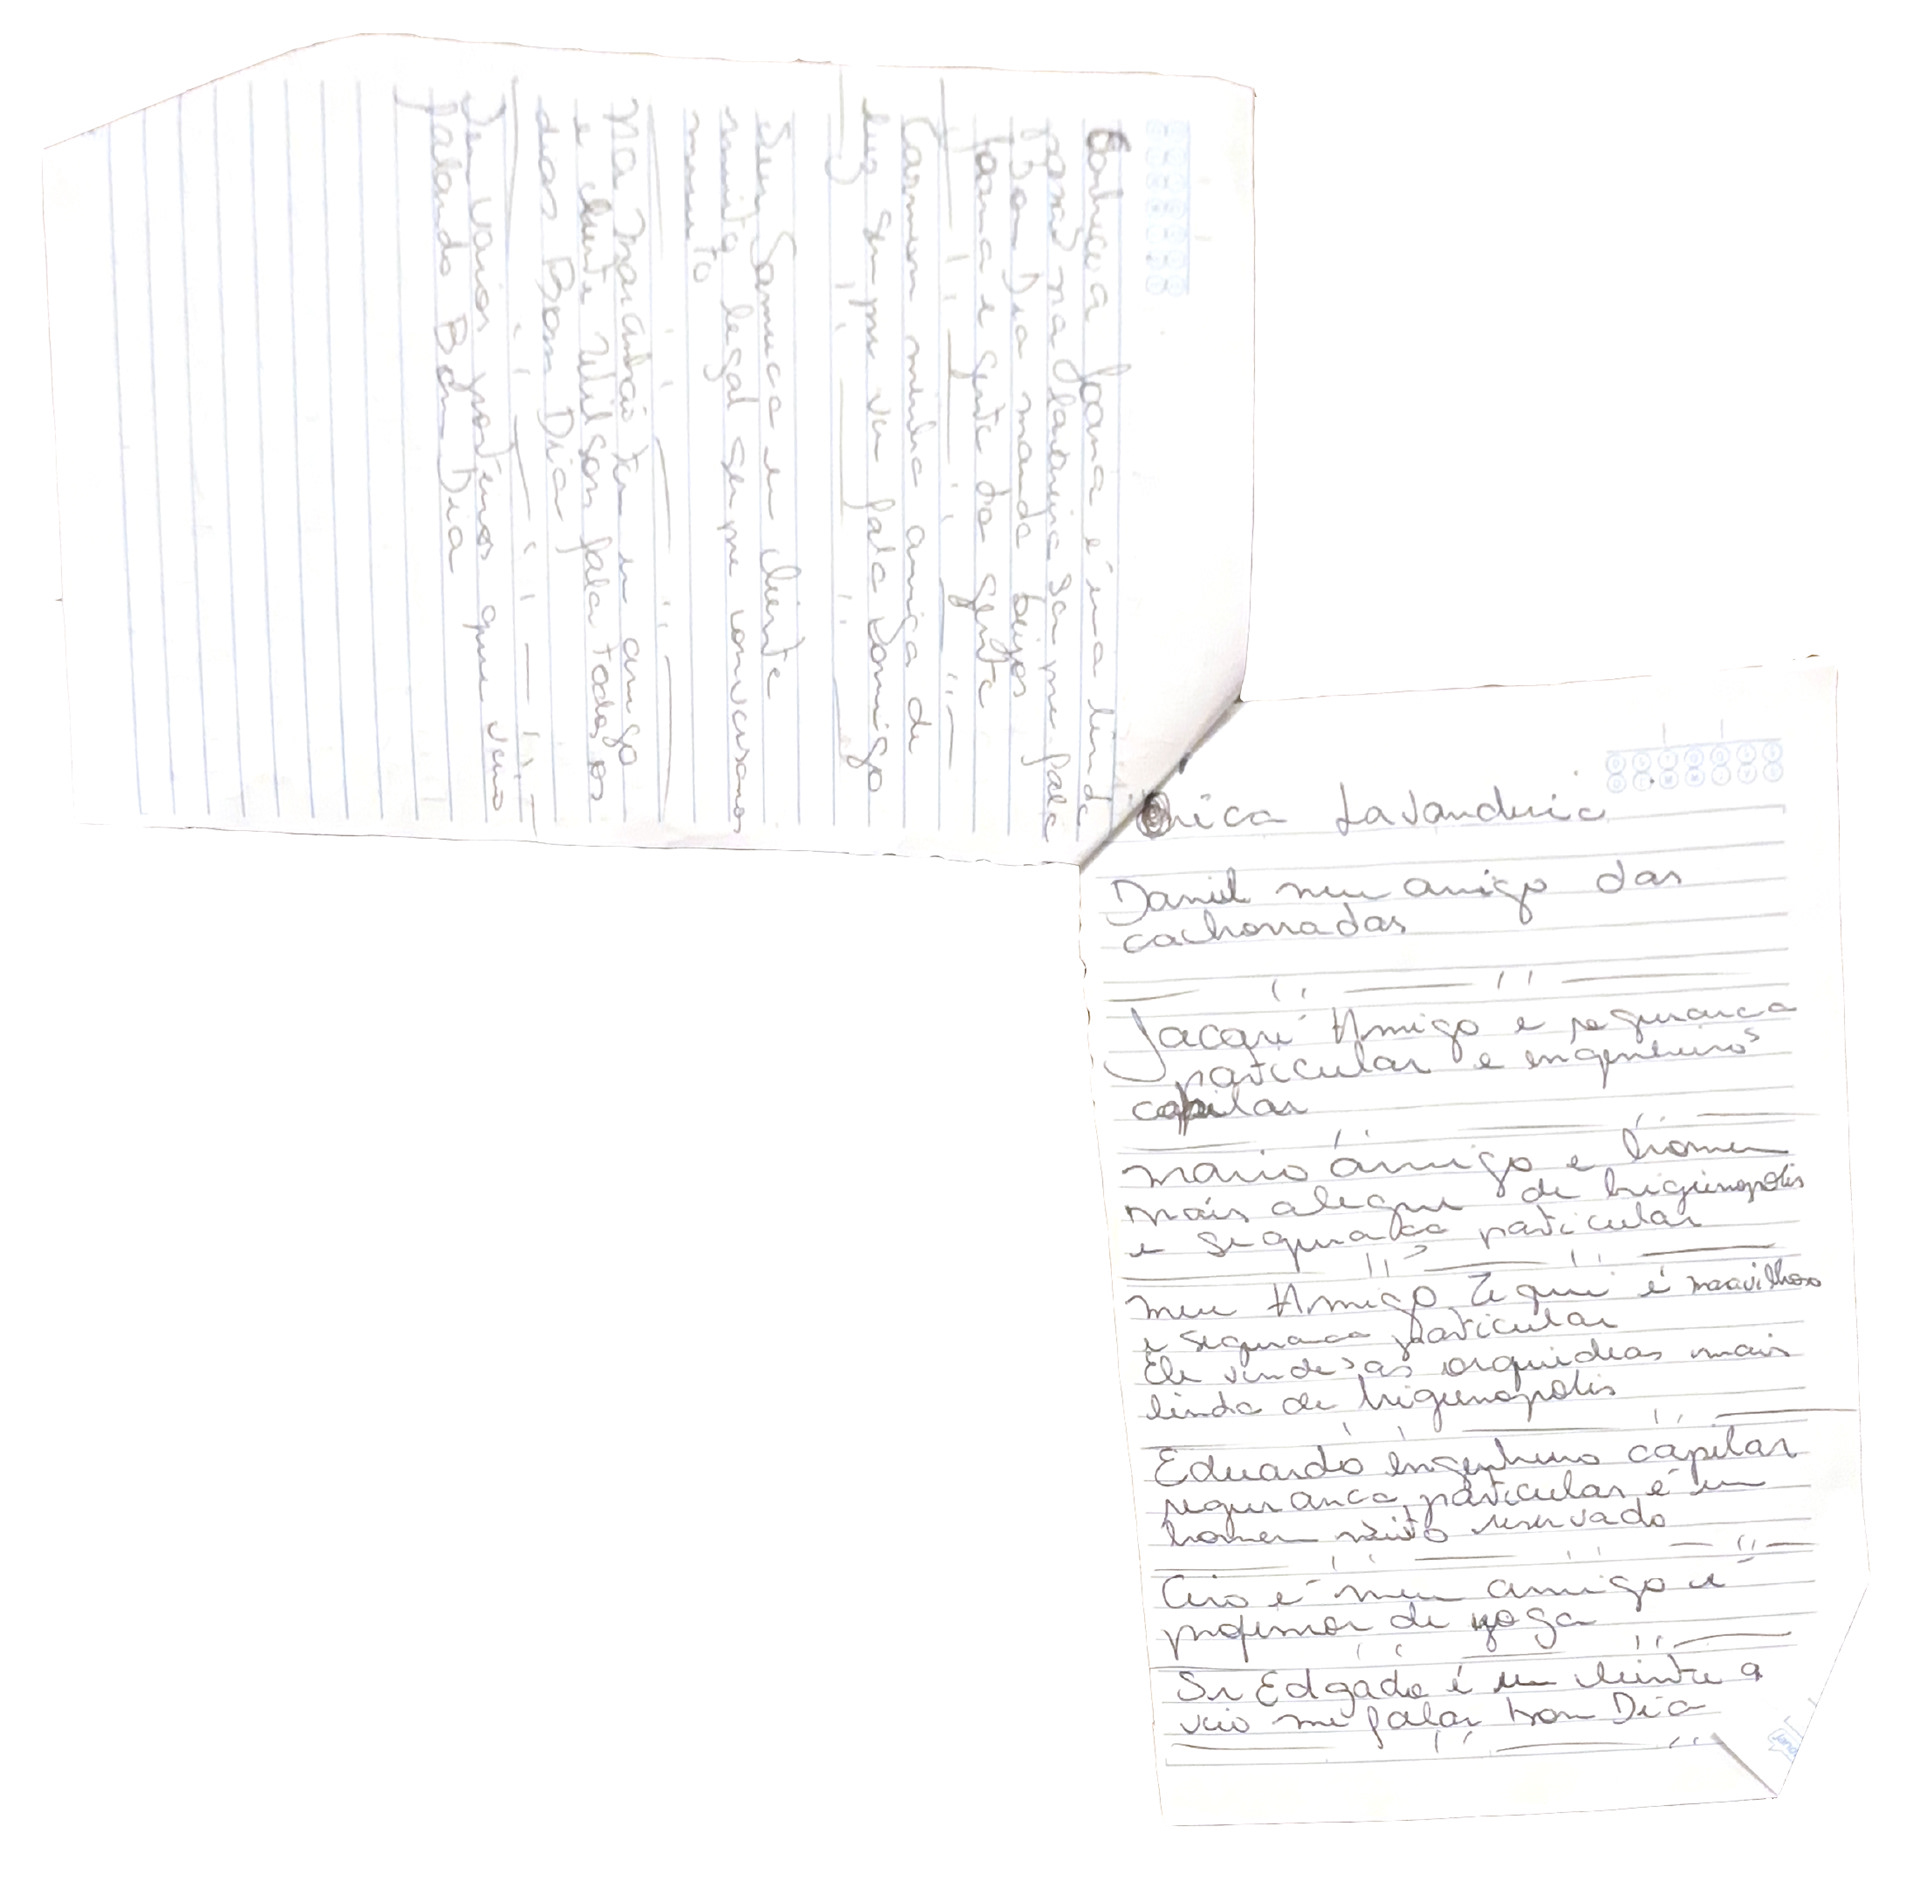 Lavanderia
Daniel meu amigo das
cachorradas
Jacque Amigo e seguranca
particular e engenheiros
capilar
Mario amigo e homem
mais alegre de higienopolis
e seguraca particular
meu Amigo Zequi é maravilhoso
e seguranca particular
Ele vende as orquideas mais
linda de higienopolis
Eduardo engenheiro capilar
seguranca particular é um
homem muito reservado
Ciro é meu amigo e
professor de yoga
Sr Edgade é um cliente q
veio me falar bom Dia
Conheci a Joana é uma linda
na lavanderia sempre fala
Bom Dia manda beijos
Joana e gente da gente
Carmem minha amiga de
luz sempre vem fala comigo
Seu Samuca um cliente
muito legal sempre conversamos
muito
Na Maranhão tem um amigo
e cliente Wilson fala todos os
dias Bom Dia
Tem varios porteiros que vem
falando Bom Dia